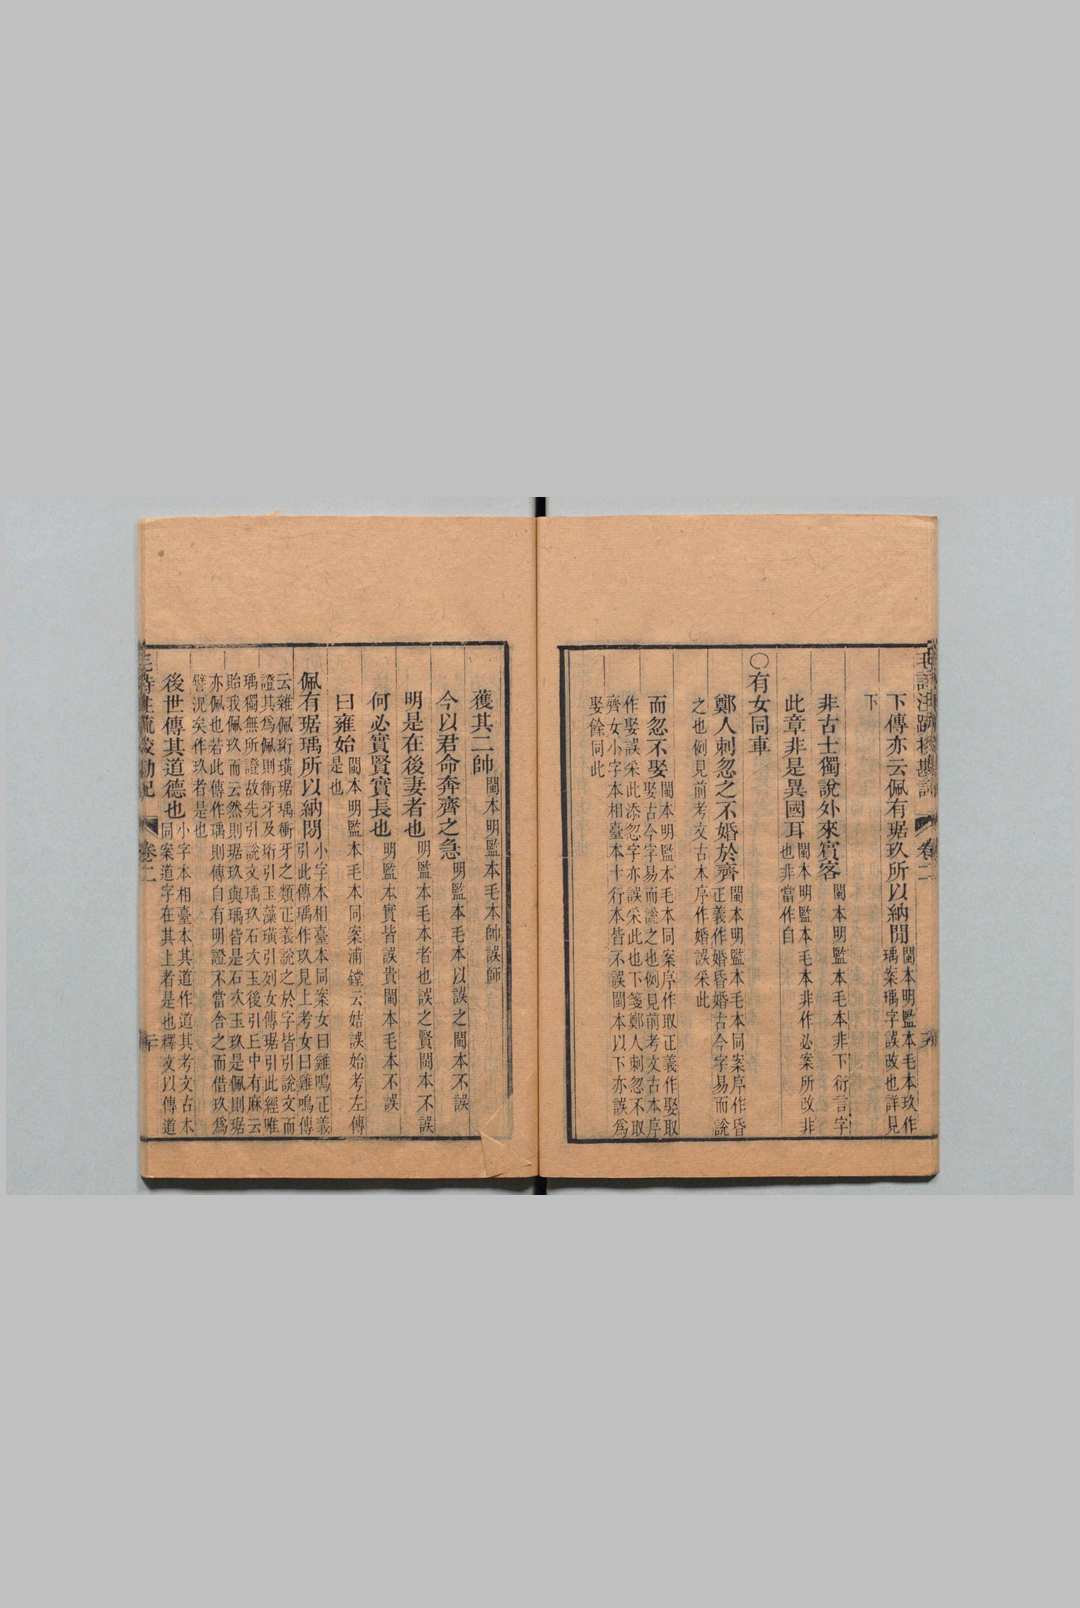 毛詩注疏校勘記 卷二
下傳亦云佩有琚玖所以納閒 閩本明監本毛本玖作
瑀案瑀字誤改也詳見
下
非古士獨說外來賓客 閩本明監本毛本非下衍言字
此章非是異國耳 閩本明監本毛本非作必案所改非
也非當作自
○有女同車
鄭人刺忽之不婚於齊 閩本明監本毛本同案序作昏
正義作婚昏婚古今字易而說
之也例見前考文古本序作婚誤采此
而忽不娶 閩本明監本毛本同案序作取正義作娶取
娶古今字易而說之也例見前考文古本序
作娶誤采此添忽字亦誤采此也下箋鄭人刺忽不取
齊女小字本相臺本十行本皆不誤閩本以下亦誤為
娶餘同此
獲其二帥 閩本明監本毛本帥誤師
今以君命奔齊之急 明監本毛本以誤之閩本不誤
明是在後妻者也 明監本毛本者也誤之賢閩本不誤
何必實賢實長也 明監本實皆誤貴閩本毛本不誤
曰雍姞 閩本明監本毛本同案浦鏜云姞誤始考左傳
是也
佩有琚瑀所以納閒 小字本相臺本同案女曰雞鳴正義
引此傳瑀作玖見上考女曰雞鳴傳
云雜佩珩璜琚瑀衝牙之類正義說之於字皆引說文而
證其為佩則衝牙及珩引玉藻璜引列女傳琚引此經唯
瑀獨無所證故先引說文瑀玖石次玉後引丘中有麻云
貽我佩玖而云然則琚玖與瑀皆是石次玉玖是佩則琚
亦佩也若此傳作瑀則傳自有明證不當舍之而借玖為
譬況矣作玖者是也
後世傳其道德也 小字本相臺本其道作道其考文古本
同案道字在其上者是也釋文以傳道
毛詩注疏校勘記 卷二